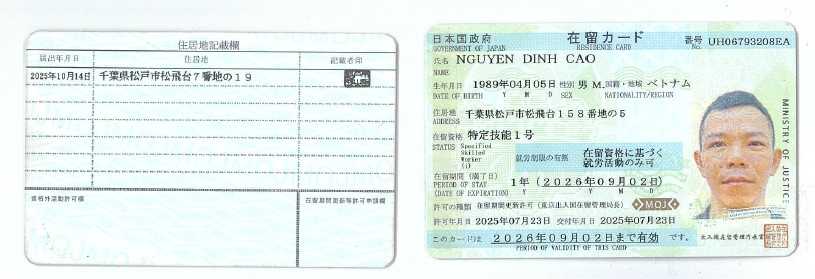 住居地記載欄
届出年月日 住居地 記載者印
2025年10月14日 千葉県松戸市松飛台7番地の19
資格外活動許可欄 在留期間更新等許可申請欄
日本国政府 在留カード 番号 UH06793208EA
GOVERNMENT OF JAPAN RESIDENCE CARD No.
氏名 NGUYEN DINH CAO
NAME
生年月日 1989年04月05日 性別 男 M. 国籍・地域 ベトナム
DATE OF BIRTH Y M D SEX NATIONALITY/REGION
住居地 千葉県松戸市松飛台158番地の5
ADDRESS
在留資格 特定技能1号
STATUS Specified
Skilled
Worker
(i)
就労制限の有無 在留資格に基づく
就労活動のみ可
在留期間(満了日) 1年(2026年09月02日)
PERIOD OF STAY
(DATE OF EXPIRATION) Y M D
MOJ
許可の種類 在留期間更新許可(東京出入国在留管理局長)
許可年月日 2025年07月23日 交付年月日 2025年07月23日
このカードは 2026年09月02日まで有効 です。
PERIOD OF VALIDITY OF THIS CARD
MINISTRY OF JUSTICE
出入国在留管理庁長官